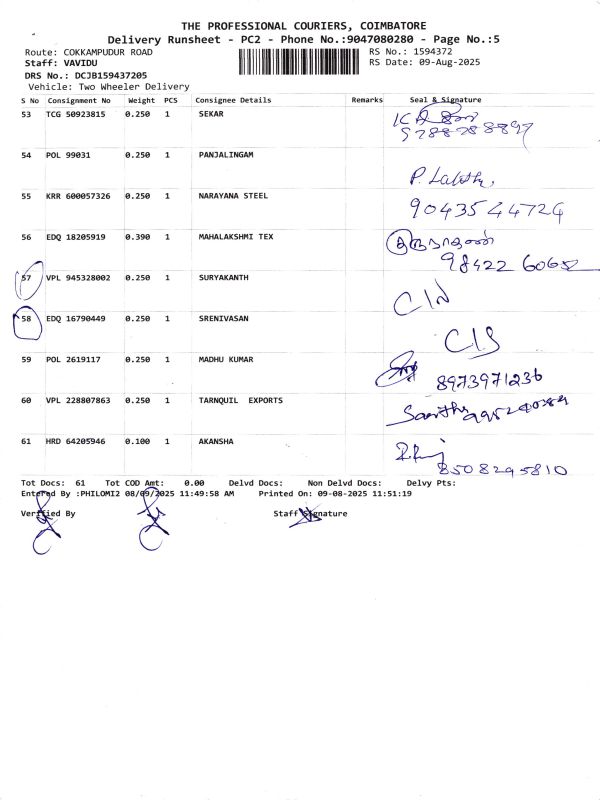 THE PROFESSIONAL COURIERS, COIMBATORE
Delivery Runsheet - PC2 - Phone No.:9047080280 - Page No.:5
Route: COKKAMPUDUR ROAD RS No.: 1594372
Staff: VAVIDU RS Date: 09-Aug-2025
DRS No.: DCJB159437205
Vehicle: Two Wheeler Delivery
S No Consignment No Weight PCS Consignee Details Remarks Seal & Signature
53 TCG 50923815 0.250 1 SEKAR
54 POL 99031 0.250 1 PANJALINGAM
P.
55 KRR 600057326 0.250 1 NARAYANA STEEL
9043544724
56 EDQ 18205919 0.390 1 MAHALAKSHMI TEX
98422 60652
57 VPL 945328002 0.250 1 SURYAKANTH
58 EDQ 16790449 0.250 1 SRENIVASAN
59 POL 2619117 0.250 1 MADHU KUMAR
8973971236
60 VPL 228807863 0.250 1 TARNQUIL EXPORTS
61 HRD 64205946 0.100 1 AKANSHA
8508295810
Tot Docs: 61 Tot COD Amt: 0.00 Delvd Docs: Non Delvd Docs: Delvy Pts:
Entered By :PHILOMI2 08/09/2025 11:49:58 AM Printed On: 09-08-2025 11:51:19
Verified By Staff Signature